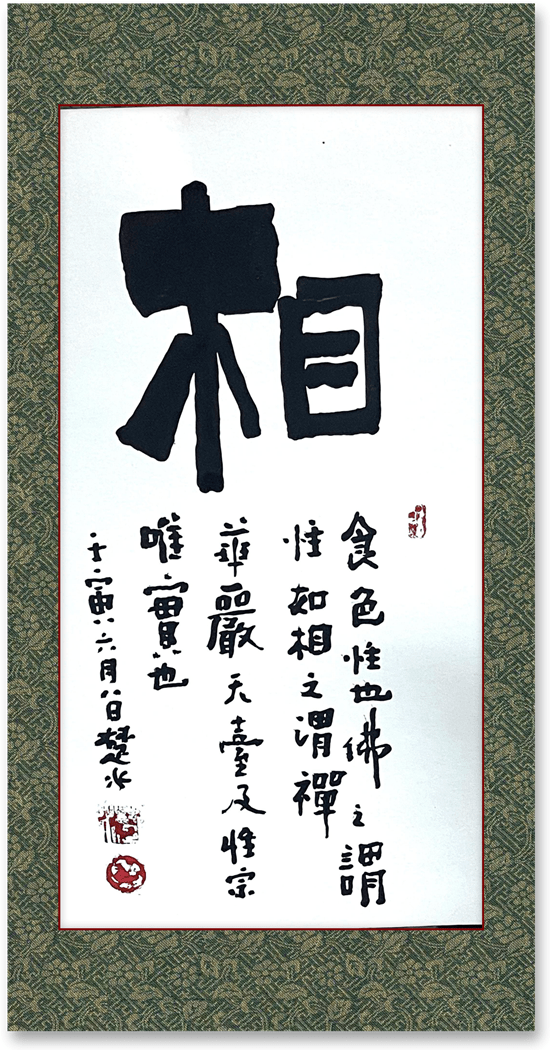 相
食色性也佛之謂
性如相之謂禪
華嚴天臺及性宗
唯實也
壬寅六月八日楚水